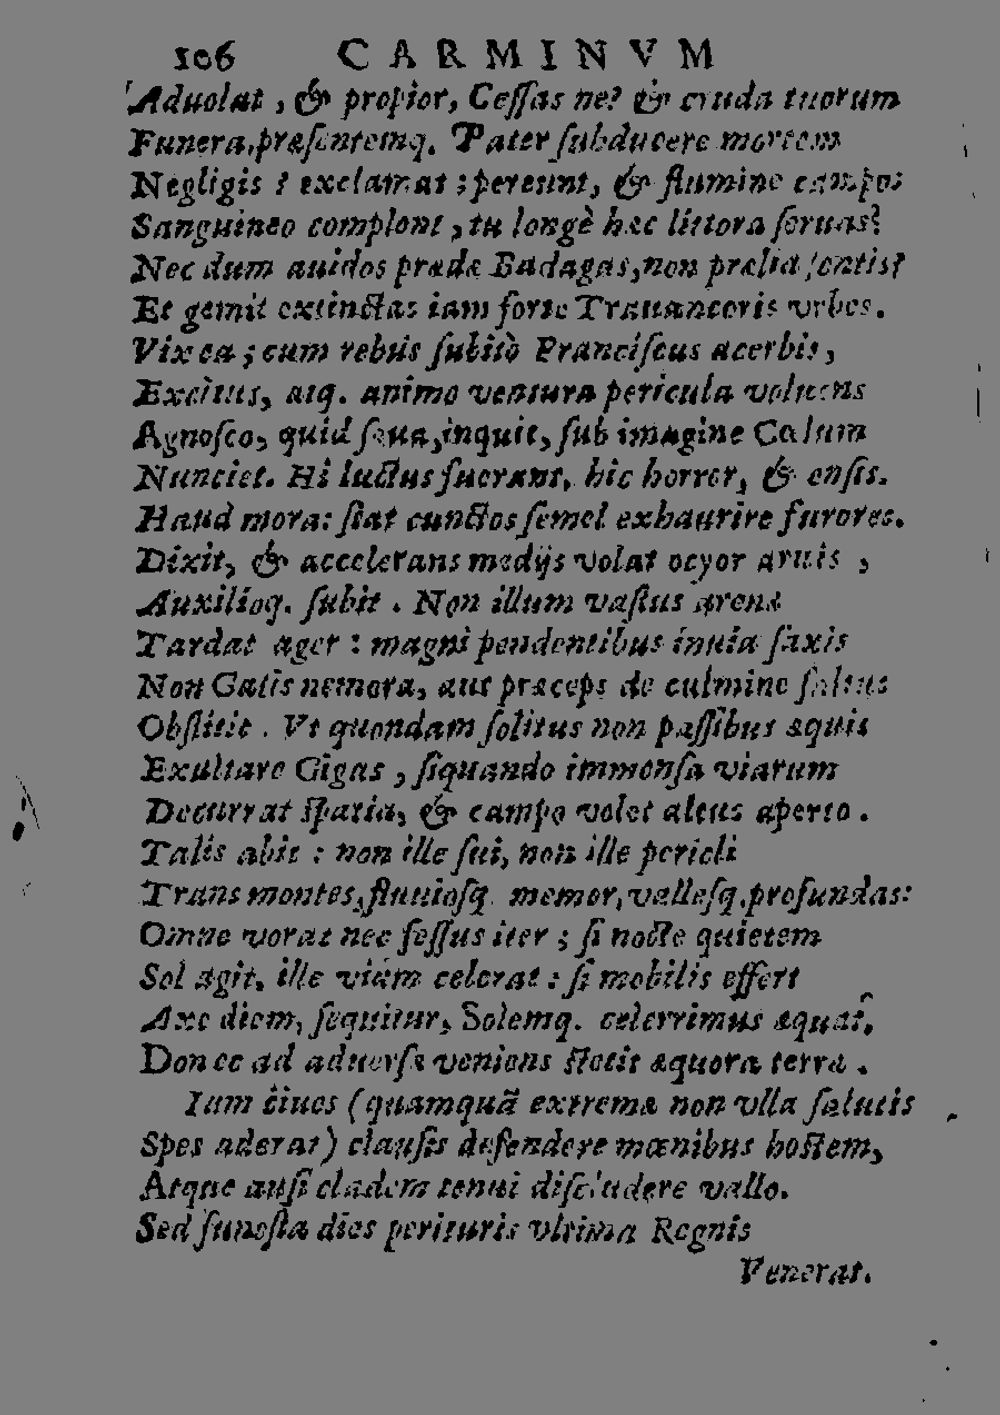 106 CARMINVM
Aduolat, & propior, Ceſſas ne? & cruda tuorum
Funera, præſentemq. Pater ſubducere mortem
Negligis? exclamat; pereunt, & flumine campos
Sanguineo complent, tu longè hæc littora ſeruas?
Nec dum auidos prædæ Badagas, non prælia ſentis?
Et gemit extinctas iam forte Trauancoris vrbes.
Vix ea; cum rebus ſubitò Franciſcus acerbis,
Excitus, atq. animo ventura pericula voluens
Agnoſco, quid ſæua, inquit, ſub imagine Cælum
Nunciet. Hi luctus fuerant, hic horror, & enſis.
Haud mora: ſtat cunctos ſemel exhaurire furores.
Dixit, & accelerans medijs volat ocyor aruis,
Auxilioq. ſubit. Non illum vaſtus arenæ
Tardat ager: magni pendentibus inuia ſaxis
Non Gatis nemora, aut præceps de culmine ſaltus
Obſtitit. Vt quondam ſolitus non paſſibus æquis
Exultare Gigas, ſiquando immenſa viarum
Decurrat ſpatia, & campo volet altus aperto.
Talis abit: non ille ſui, non ille pericli
Trans montes, fluuioſq. memor, valleſq. profundas:
Omne vorat nec feſſus iter; ſi nocte quietem
Sol agit, ille viam celerat: ſi mobilis effert
Axe diem, ſequitur, Solemq. celerrimus æquat,
Donec ad aduerſæ veniens ſtetit æquora terræ.
Iam ciues (quamquã extremæ non vlla ſalutis
Spes aderat) clauſis defendere mœnibus hoſtem,
Atque auſi cladem tenui diſcludere vallo.
Sed funeſta dies perituris vltima Regnis
Venerat.